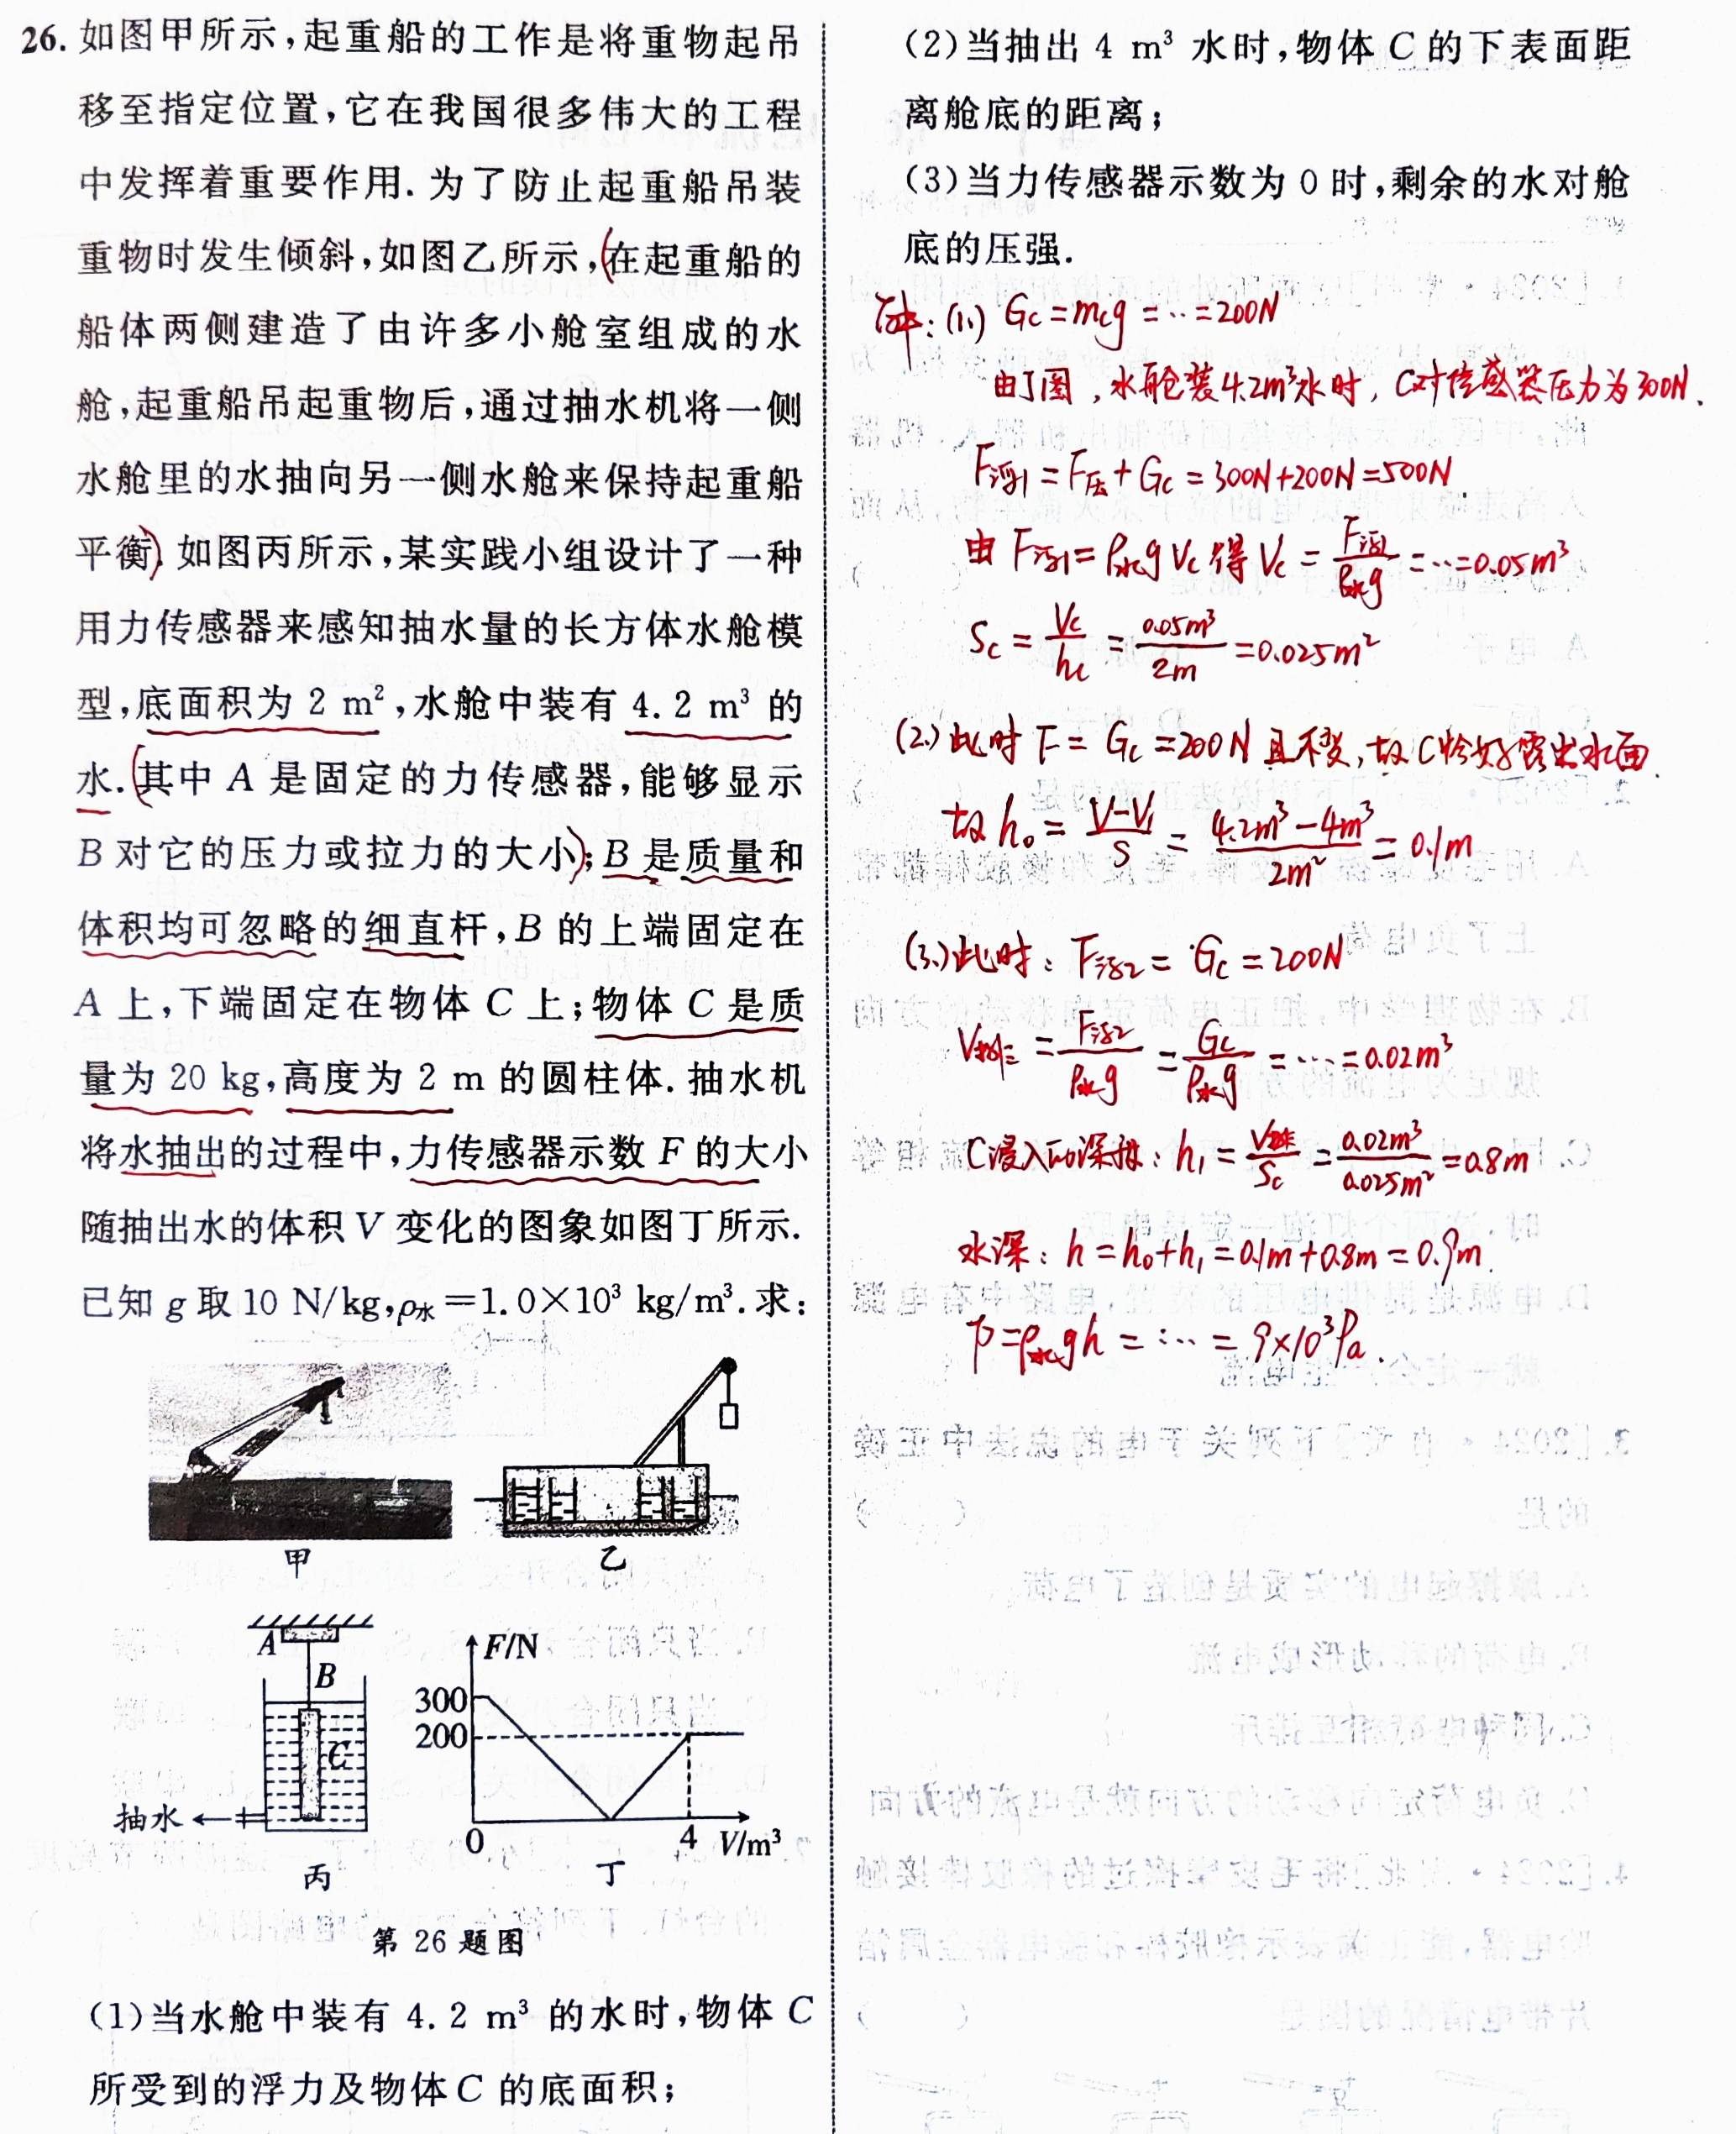 26. 如图甲所示,起重船的工作是将重物起吊
移至指定位置,它在我国很多伟大的工程
中发挥着重要作用. 为了防止起重船吊装
重物时发生倾斜,如图乙所示,(在起重船的
船体两侧建造了由许多小舱室组成的水
舱,起重船吊起重物后,通过抽水机将一侧
水舱里的水抽向另一侧水舱来保持起重船
平衡). 如图丙所示,某实践小组设计了一种
用力传感器来感知抽水量的长方体水舱模
型,底面积为 2 m²,水舱中装有 4. 2 m³ 的
水.(其中 A 是固定的力传感器,能够显示
B 对它的压力或拉力的大小);B 是质量和
体积均可忽略的细直杆,B 的上端固定在
A 上,下端固定在物体 C 上;物体 C 是质
量为 20 kg,高度为 2 m 的圆柱体. 抽水机
将水抽出的过程中,力传感器示数 F 的大小
随抽出水的体积 V 变化的图象如图丁所示.
已知 g 取 10 N/kg,ρ水=1. 0×10³ kg/m³. 求:
甲
乙
A
B
C
抽水
丙
F/N
300
200
0
4
V/m³
丁
第 26 题图
(1)当水舱中装有 4. 2 m³ 的水时,物体 C
所受到的浮力及物体 C 的底面积;
(2)当抽出 4 m³ 水时,物体 C 的下表面距
离舱底的距离;
(3)当力传感器示数为 0 时,剩余的水对舱
底的压强.
解:(1.) Gc=mcg=…=200N
由丁图,水舱装4.2m³水时,C对传感器压力为300N.
F浮1=F压+Gc=300N+200N=500N.
由 F浮1=ρ水gVc 得 Vc=F浮1/ρ水g=…=0.05m³
Sc=Vc/hc=0.05m³/2m=0.025m²
(2.) 此时 F=Gc=200N 且不变,故C恰好露出水面.
故 h₀=V-V₁/S=4.2m³-4m³/2m²=0.1m
(3.) 此时:F浮2=Gc=200N
V排=F浮2/ρ水g=Gc/ρ水g=…=0.02m³
C浸入的深度:h₁=V排/Sc=0.02m³/0.025m²=0.8m
水深:h=h₀+h₁=0.1m+0.8m=0.9m.
p=ρ水gh=…=9×10³Pa.